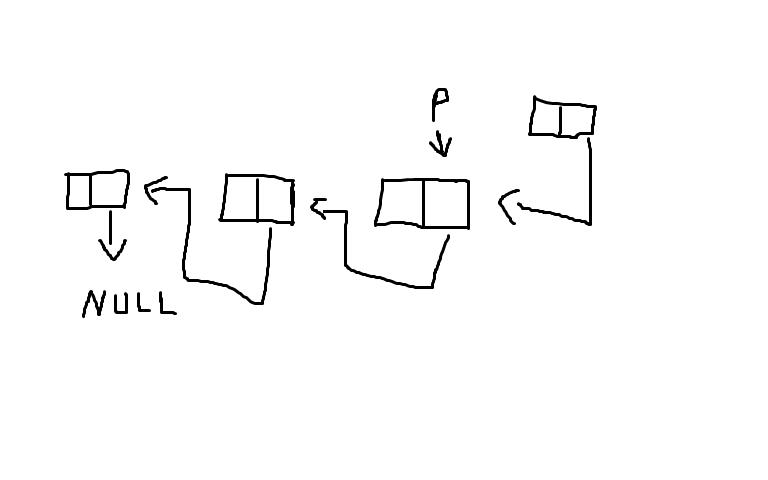 P
NULL